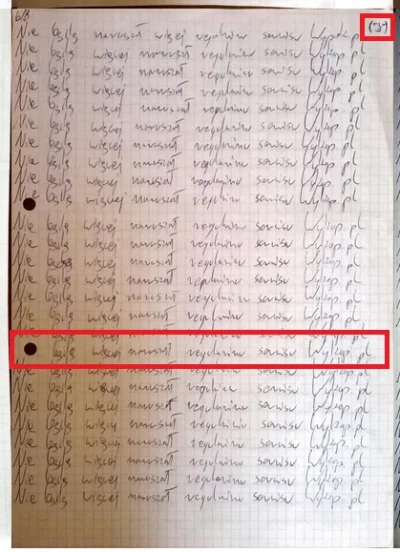 6/8
Nie będę naruszał więcej regulaminu serwisu
Nie będę więcej naruszał regulaminu serwisu Wykop.pl
Nie będę więcej naruszał regulaminu serwisu Wykop.pl
Nie będę więcej naruszał regulaminu serwisu Wykop.pl
Nie będę więcej naruszał regulaminu serwisu Wykop.pl
Nie będę więcej naruszał regulaminu serwisu Wykop.pl
Nie będę więcej naruszał regulaminu serwisu Wykop.pl
Nie będę więcej naruszał regulaminu serwisu Wykop.pl
Nie będę więcej naruszał regulaminu serwisu Wykop.pl
Nie będę więcej naruszał regulaminu serwisu Wykop.pl
Nie będę więcej naruszał regulaminu serwisu Wykop.pl
Nie będę więcej naruszał regulaminu serwisu Wykop.pl
Nie będę więcej naruszał regulaminu serwisu Wykop.pl
Nie będę więcej naruszał regulaminu serwisu Wykop.pl
Nie będę więcej naruszał regulaminu serwisu Wykop.pl
Nie będę więcej naruszał regulaminu serwisu Wykop.pl
Nie będę więcej naruszał regulaminu serwisu Wykop.pl
będę więcej naruszał regulaminu serwisu Wykop.pl
Nie będę więcej naruszał regulaminu serwisu Wykop.pl
Nie będę więcej naruszał regulaminu serwisu Wykop.pl
Nie będę więcej naruszał regulaminu serwisu Wykop.pl
Nie będę więcej naruszał regulaminu serwisu Wykop.pl
Nie będę więcej naruszał regulaminu serwisu Wykop.pl
Nie będę więcej naruszał regulaminu serwisu Wykop.pl
Nie będę więcej naruszał regulaminu serwisu Wykop.pl
Nie będę więcej naruszał regulaminu serwisu Wykop.pl